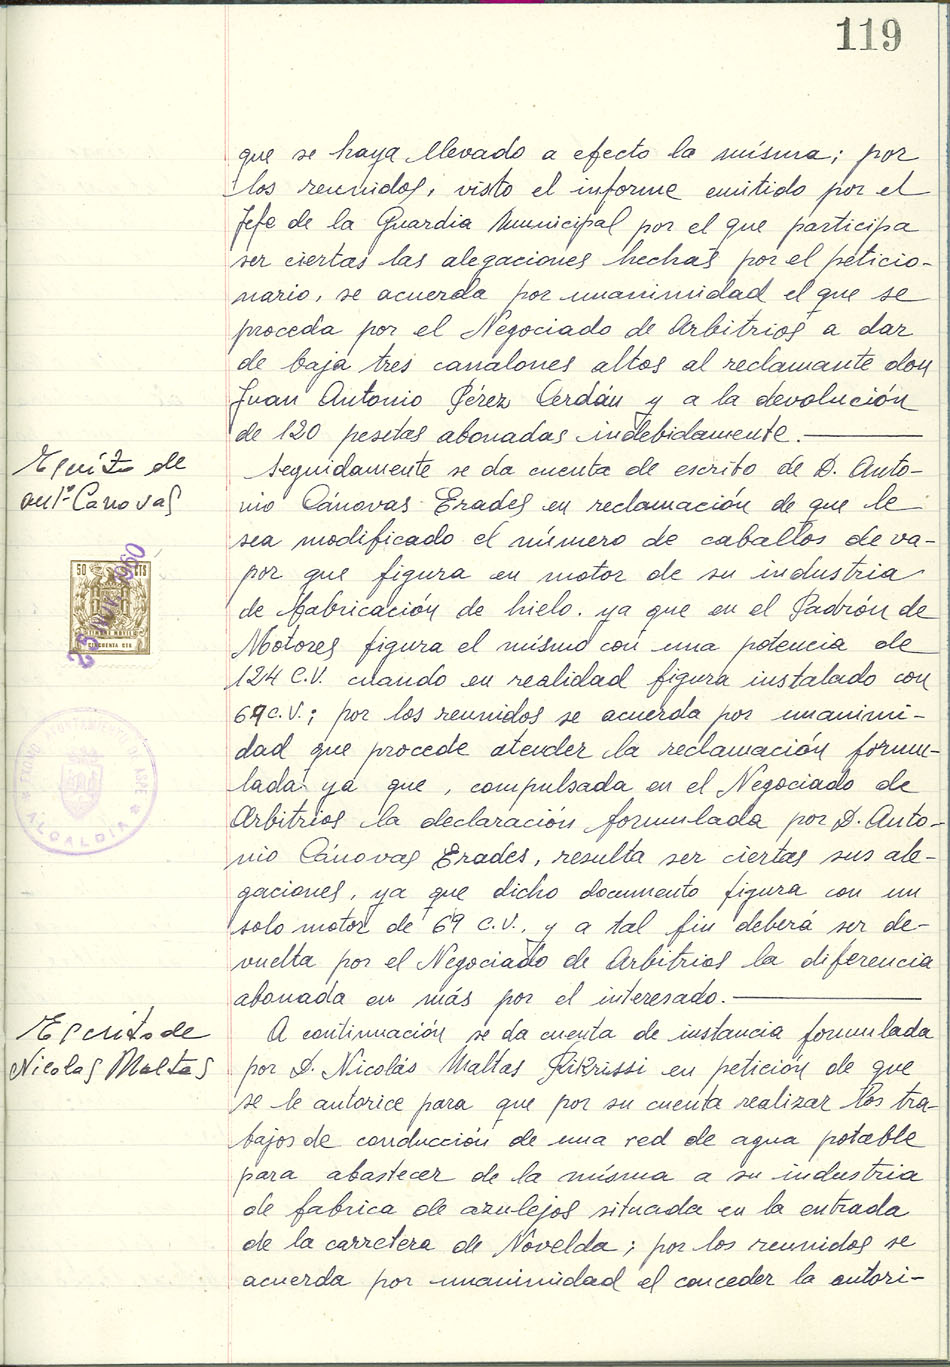 119
que se haya llevado a efecto la misma; por
los reunidos, visto el informe emitido por el
Jefe de la Guardia Municipal por el que participa
ser ciertas las alegaciones hechas por el peticio-
nario, se acuerda por unanimidad el que se
proceda por el Negociado de Arbitrios a dar
de baja tres canalones altos al reclamante don
Juan Antonio Pérez Cerdán y a la devolución
de 120 pesetas abonadas indebidamente.
Escrito de
Antº Canovas
Seguidamente se da cuenta de escrito de D. Anto-
nio Cánovas Erades en reclamación de que le
sea modificado el número de caballos de va-
por que figura en motor de su industria
de fabricación de hielo. ya que en el Padrón de
Motores figura el mismo con una potencia de
124 C.V. cuando en realidad figura instalado con
69 C.V.; por los reunidos se acuerda por unanimi-
dad que procede atender la reclamación formu-
lada ya que, compulsada en el Negociado de
Arbitrios la declaración formulada por D. Anto-
nio Cánovas Erades, resulta ser ciertas sus ale-
gaciones, ya que dicho documento figura con un
solo motor de 69 C.V., y a tal fin deberá ser de-
vuelta por el Negociado de Arbitrios la diferencia
abonada en más por el interesado.
50 CTS
CINCUENTA CTS
25 NOV. 1960
EXCMO. AYUNTAMIENTO DE ASPE
* ALCALDIA *
Escrito de
Nicolas Maltas
A continuación se da cuenta de instancia formulada
por D. Nicolás Maltas Kikrissi en petición de que
se le autorice para que por su cuenta realizar los tra-
bajos de conducción de una red de agua potable
para abastecer de la misma a su industria
de fabrica de azulejos situada en la entrada
de la carretera de Novelda; por los reunidos se
acuerda por unanimidad el conceder la autori-